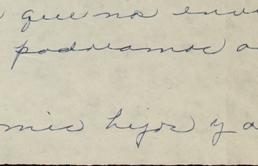 que nos
podreamos a
mis hijos y a